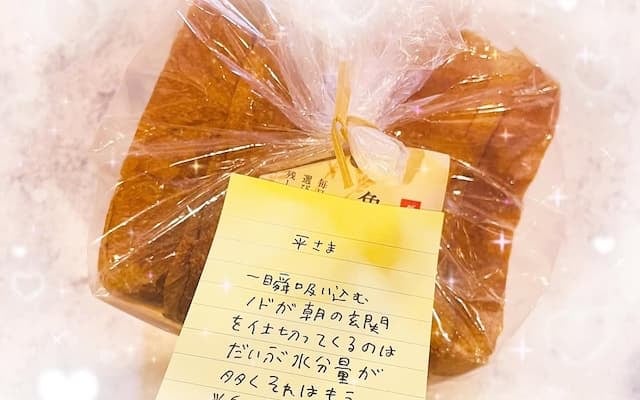 平さま
一瞬吸い込む
ノドが朝の玄関
を仕切ってくるのは
だいぶ水分量が
多くそれはもう